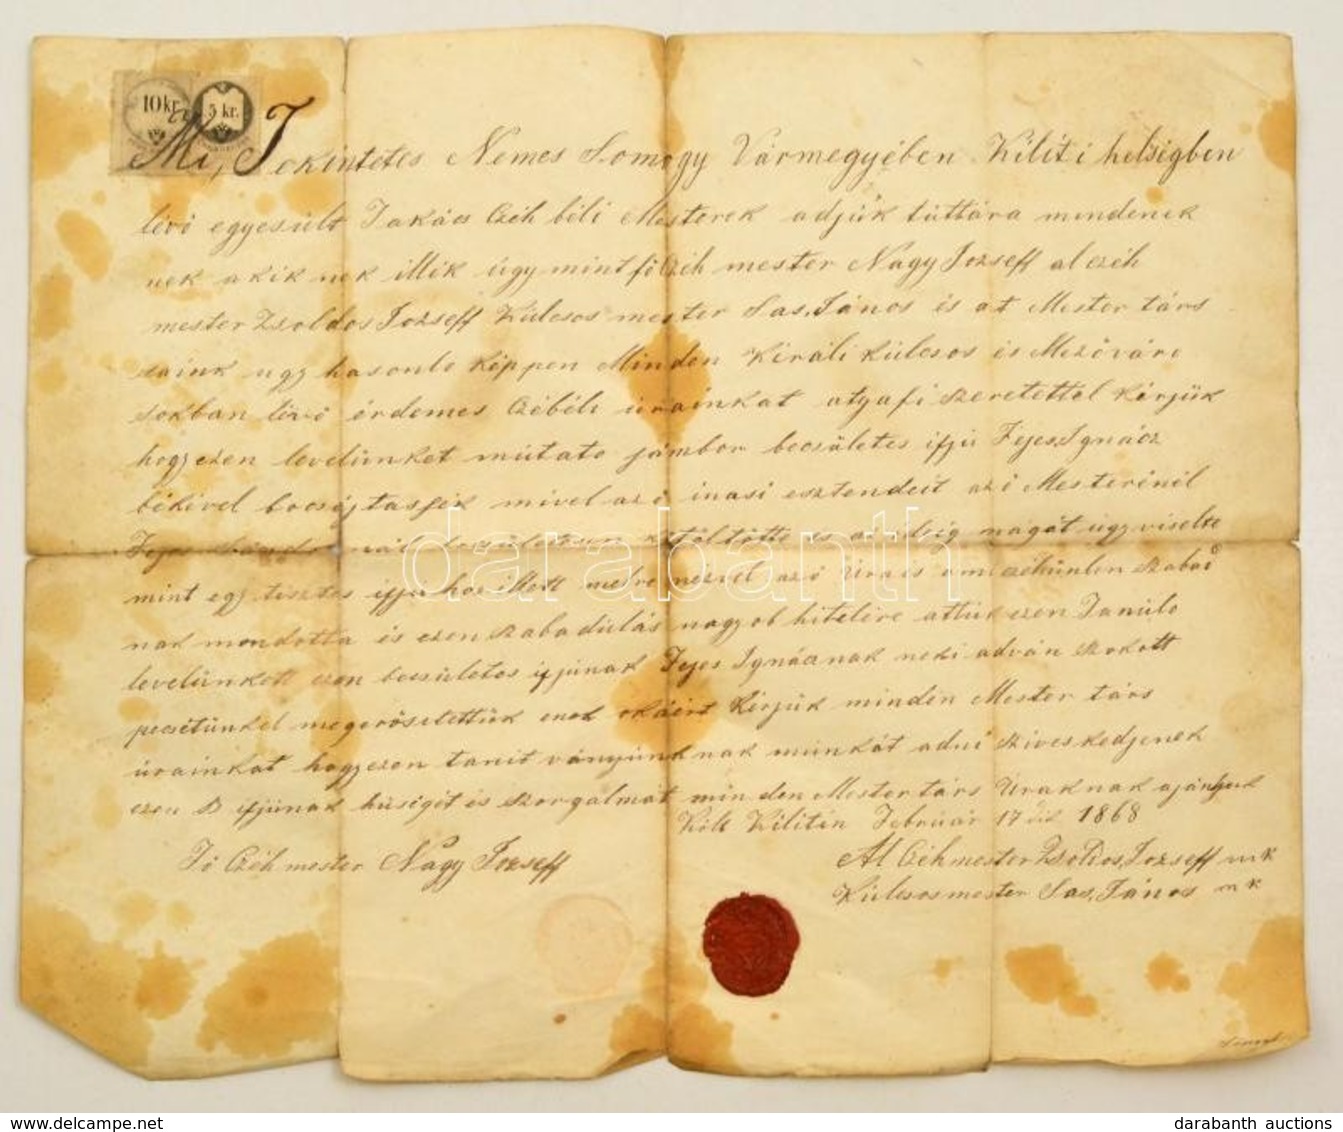 10 kr. 5 kr.
Mi, Tekintetes Nemes Somogy Vármegyében Kiliti helsigben
lévö egyesült Takács Czéh béli Mesterek adjúk túttára mindenek
nek akik nek illik úgy mint fö Czéh mester Nagy Jozseff al czéh
mester Zsoldos Jozseff Kúlcsos mester Sas, János is at Mester társ
saink ugy hasonlo képpen Minden Királi külcsos és Mezöváro
sokban lévö érdemes Czébéli úrainkat atyafi szeretettel kérjük
hogy ezen levelünket mútato jámbor becsületes ifjú Fejes, Ignácz
békivel bocsájtassék mivel az ö inasi esztendeit az ö Mesterénél
Fejes ki töltötte is magát úgy viselte
mint egy tisztes ifjú hoz illett melre nézvel az ö Ura is szabad
nak mondotta és ezen szabadúlás nagyob hitelire attúk ezen Tanúlo
levelünkett ezen becsületes ifjúnak Fejes Ignácznak neki adván szokott
pecsétünkel megerösitettük enek okáért Kérjük minden Mester társ
úrainkat hogy ezen tanit ványúnk nak múnkát adni sziveskedjenek
ezen B ifjúnak hüsigit és szorgalmát min den Mester társ Úrak nak ajánljuk
Költ Kilitin Február 17 dik 1868
Fö Czéh mester Nagy Jozseff
Al Czéhmester Zsoldos, Jozseff mk
Kúlcsos mester Sas, János mk
darabanth
darabanth auctions